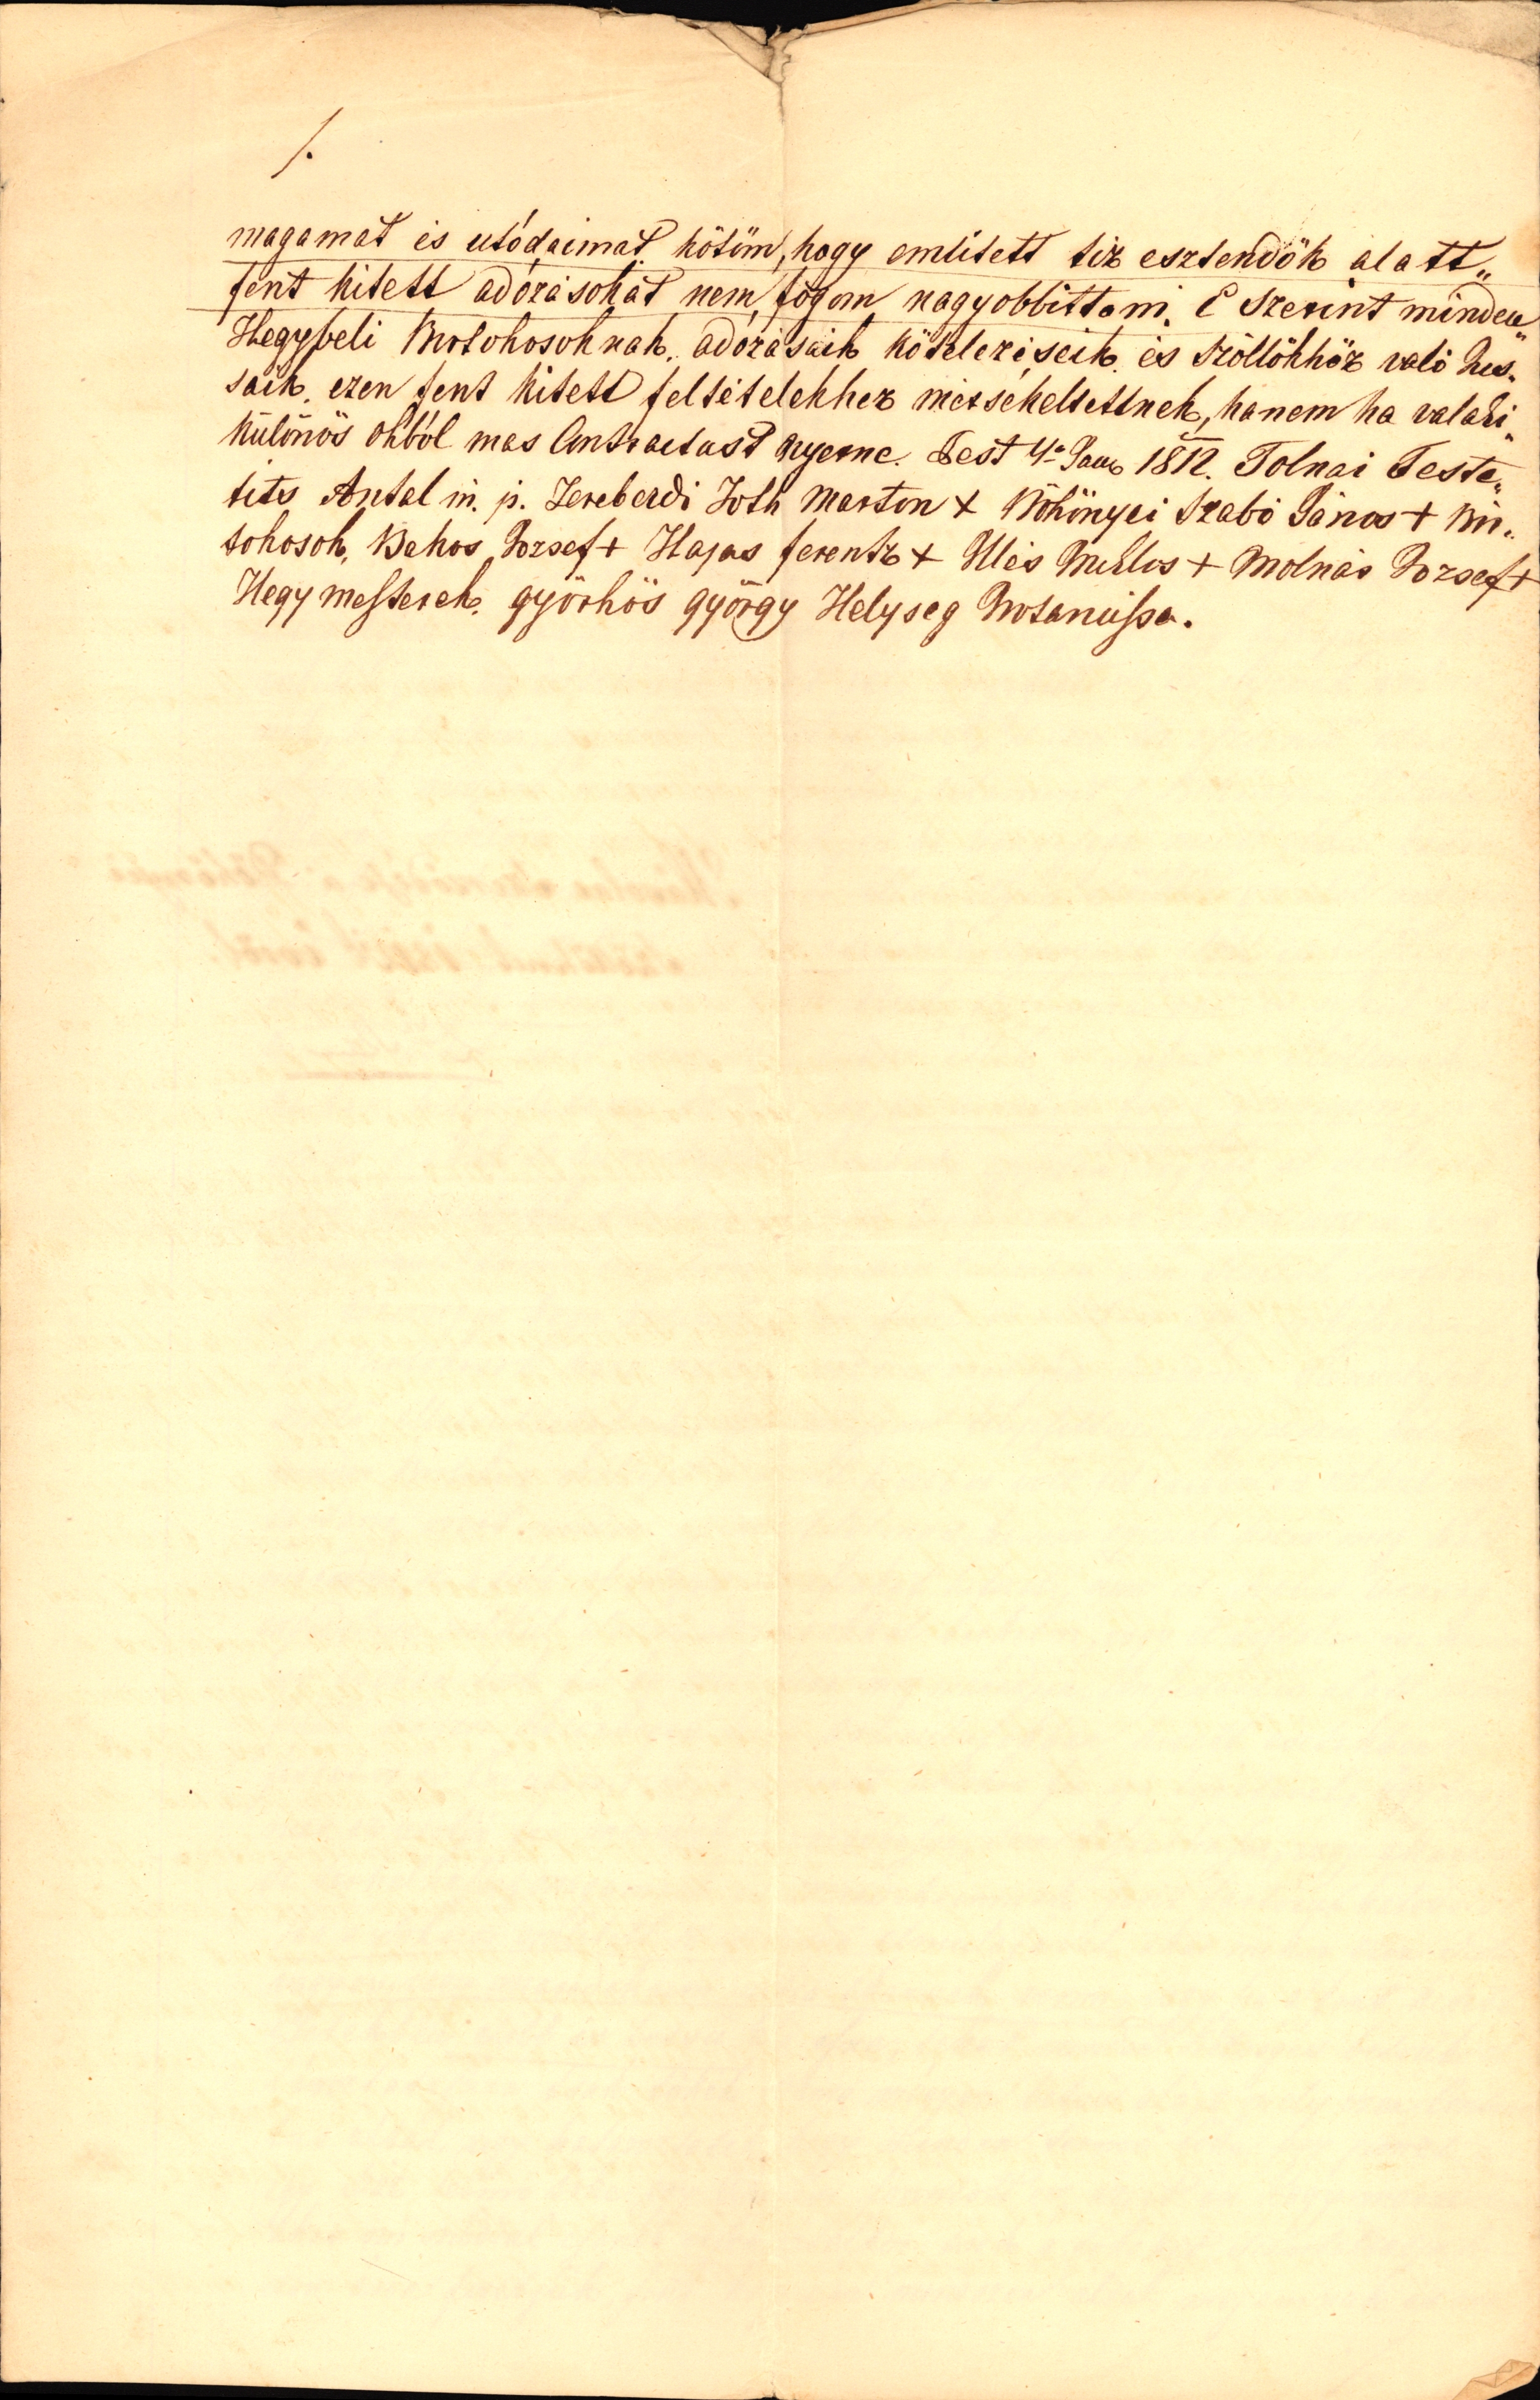 /.
magamat és utódaimat kötöm, hogy emlitett tiz esztendök alatt„
fent kitett adózásokat nem fogom nagyobbittani. E szerint minden„
Hegybeli Birtokosoknak adózásaik kötelezéseik és szöllökhöz való Jus„
saik ezen fent kitett feltételekhez mérsékeltettnek, hanem ha valaki„
különös okból mas Contractust nyerne. Pest 4a Janu 1812. Tolnai Feste„
tits Antal m. p. Zereberdi Toth Marton + Kökönyei Szabó János + Bir„
tokosok, Bakos Jozsef + Hajas ferentz + Illés Miklos + Molnár Jozsef +
Hegymesterek. györkös györgy Helyseg Notariussa.